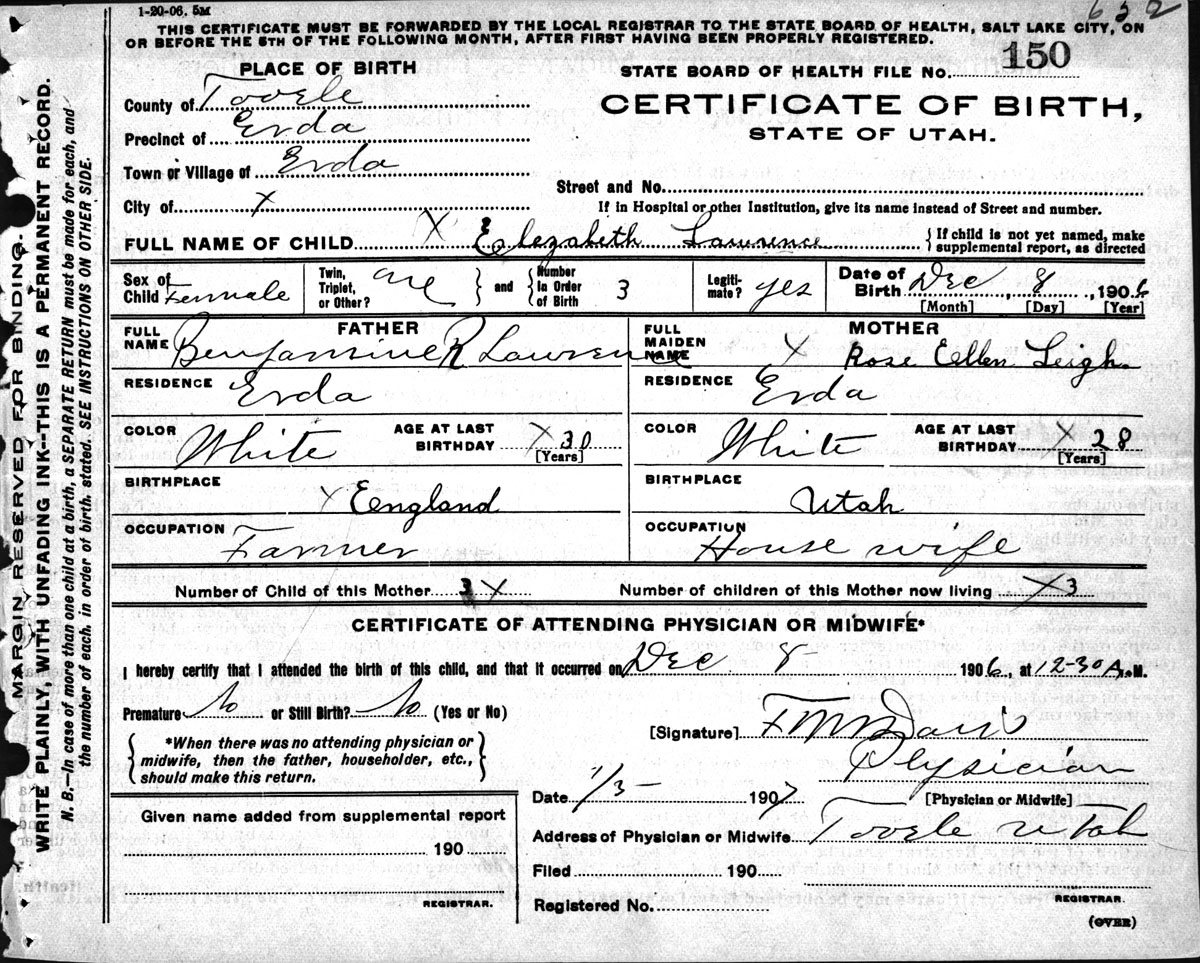 1-20-06, 5M
632
THIS CERTIFICATE MUST BE FORWARDED BY THE LOCAL REGISTRAR TO THE STATE BOARD OF HEALTH, SALT LAKE CITY, ON
OR BEFORE THE 5TH OF THE FOLLOWING MONTH, AFTER FIRST HAVING BEEN PROPERLY REGISTERED.
MARGIN RESERVED FOR BINDING.
WRITE PLAINLY, WITH UNFADING INK—THIS IS A PERMANENT RECORD.
N. B.—In case of more than one child at a birth, a SEPARATE RETURN must be made for each, and
the number of each, in order of birth, stated. SEE INSTRUCTIONS ON OTHER SIDE.
PLACE OF BIRTH
STATE BOARD OF HEALTH FILE NO. 150
County of Tooele
CERTIFICATE OF BIRTH,
Precinct of Erda
STATE OF UTAH.
Town or Village of Erda
Street and No.
City of X
If in Hospital or other Institution, give its name instead of Street and number.
FULL NAME OF CHILD X Elezabeth Lawrence { If child is not yet named, make
supplemental report, as directed
Sex of Child Female
Twin, Triplet, or Other? one } and { Number In Order of Birth 3
Legiti-mate? yes
Date of Birth Dec 8, 1906
[Month] [Day] [Year]
FATHER
FULL NAME Benjamine R Lawrence
MOTHER
FULL MAIDEN NAME X Rose Eellen Leigh
RESIDENCE Erda
RESIDENCE Erda
COLOR White
AGE AT LAST BIRTHDAY X 30
[Years]
COLOR White
AGE AT LAST BIRTHDAY X 28
[Years]
BIRTHPLACE X Eengland
BIRTHPLACE Utah
OCCUPATION Farmer
OCCUPATION House wife
Number of Child of this Mother 3 X
Number of children of this Mother now living X 3
CERTIFICATE OF ATTENDING PHYSICIAN OR MIDWIFE*
I hereby certify that I attended the birth of this child, and that it occurred on Dec 8 1906, at 12-30 A. M.
Premature No or Still Birth? No (Yes or No)
{ *When there was no attending physician or
midwife, then the father, householder, etc.,
should make this return. }
[Signature] Davis
Physician
[Physician or Midwife]
Date 1/3- 1907
Address of Physician or Midwife Tooele Utah
Given name added from supplemental report
190
REGISTRAR.
Filed 190
REGISTRAR.
Registered No.
(OVER)